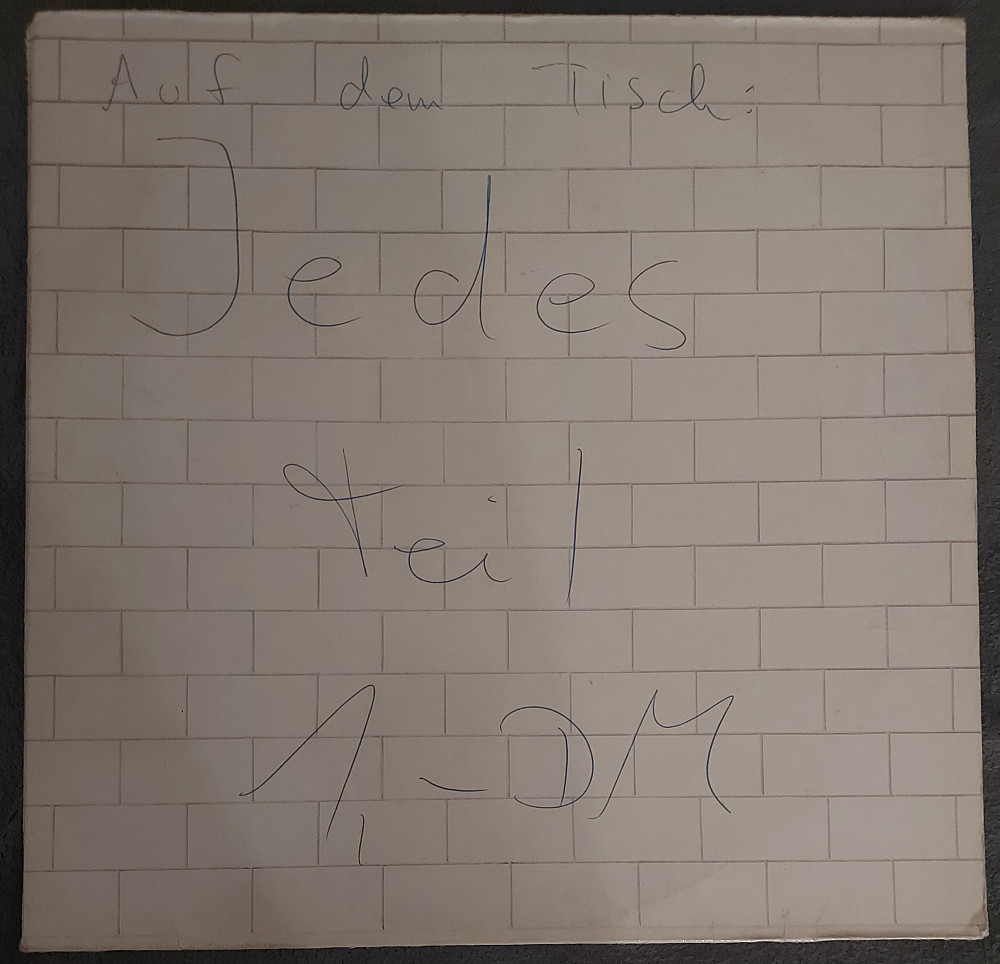 Auf dem Tisch:
Jedes
Teil
1,- DM